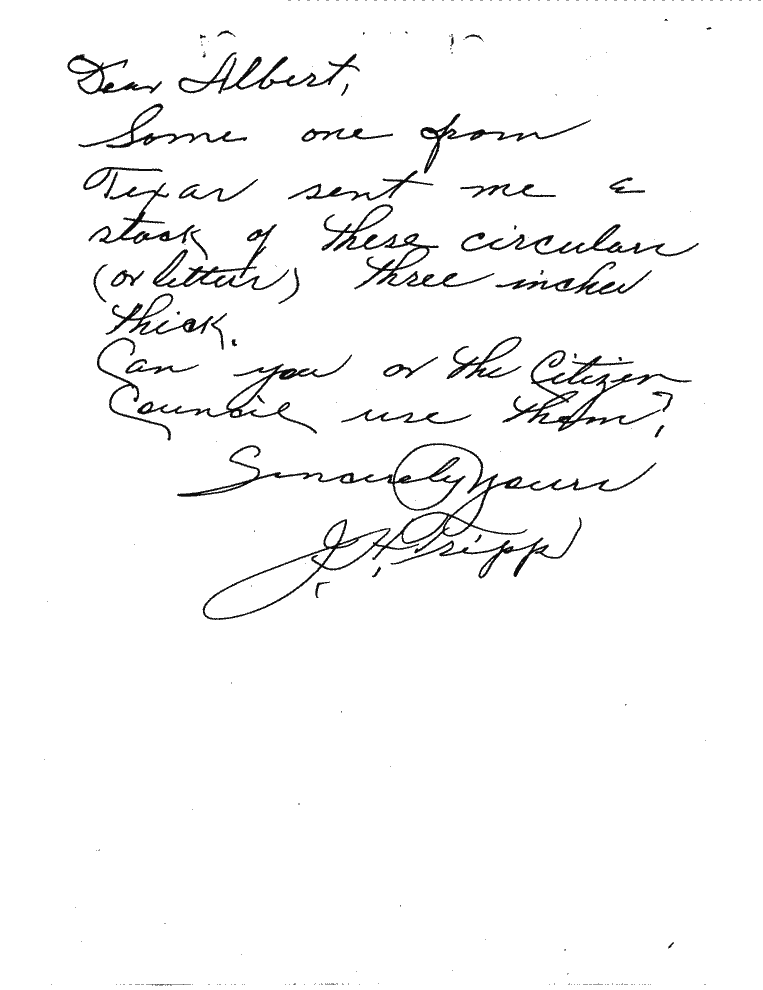 Dear Albert,
Some one from
Texas sent me a
stack of these circulars
(or letters) three inches
thick.
Can you or the Citizen
Council use them?
Sincerely Yours
J. H. Tripp